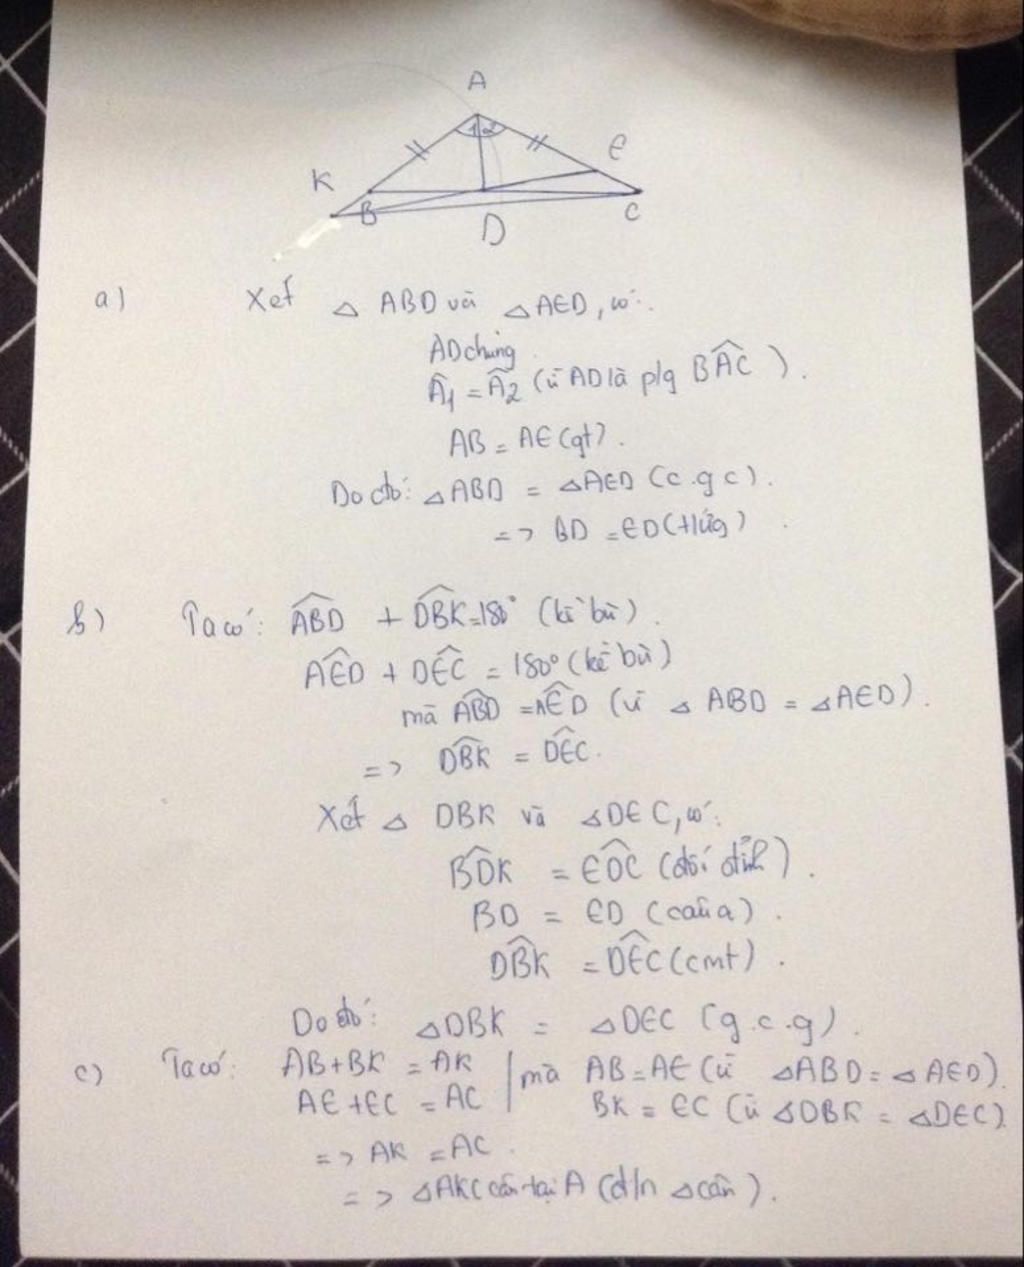 A
1 2
K
E
B
D
C
a) Xét △ ABD và △AED, có:
AD chung.
Â1 = Â2 (vì AD là p/g BÂC).
AB = AE (gt).
Do đó: △ABD = △AED (c.g c).
=> BD = ED (t/ứg).
b) Ta có: \widehat{ABD} + \widehat{DBK} = 180° (kề bù).
\widehat{AED} + \widehat{DEC} = 180° (kề bù)
mà \widehat{ABD} = \widehat{AED} (vì △ ABD = △AED).
=> \widehat{DBK} = \widehat{DEC}.
Xét △ DBK và △DEC, có:
\widehat{BDK} = \widehat{EDC} (đối đỉnh).
BD = ED (câu a).
\widehat{DBK} = \widehat{DEC} (cmt).
Do đó: △DBK = △DEC (g.c.g).
c) Ta có: AB + BK = AK | mà AB = AE (vì △ABD = △AED).
AE + EC = AC | BK = EC (vì △DBK = △DEC).
=> AK = AC.
=> △AKC cân tại A (đ/n △cân).